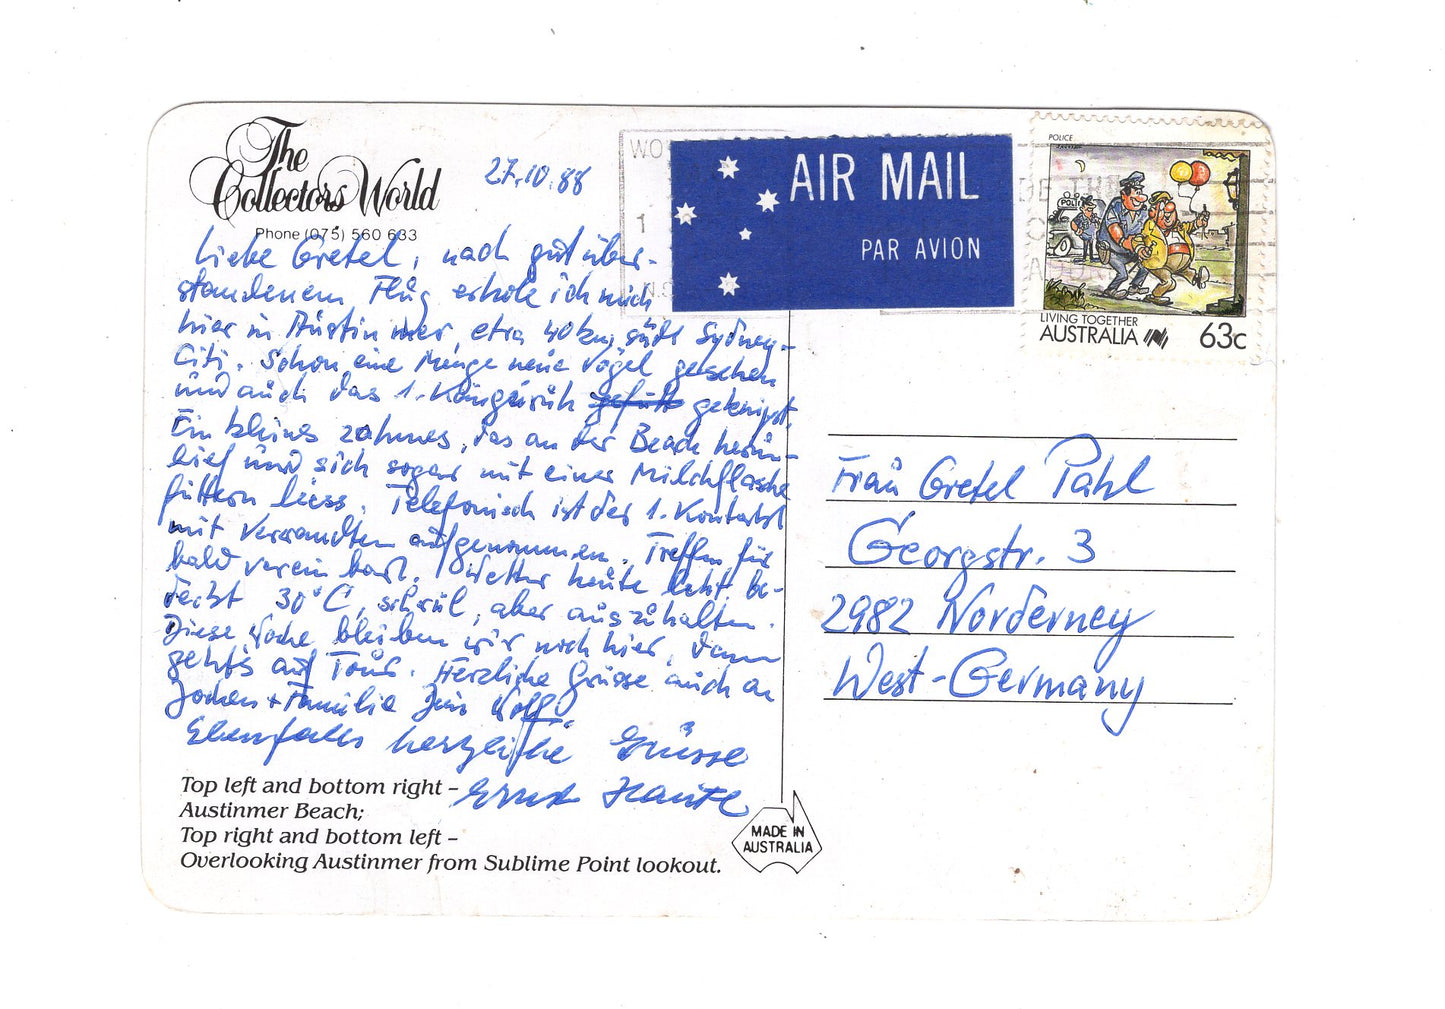 The
Collectors World
Phone (075) 560 633
27.10.88
Liebe Gretel, nach gut über-
standenem Flug erhole ich mich
hier in Austinmer, etwa 40 km südl Sydney-
Citi. Schon eine Menge neue Vögel gesehen
und auch das 1. Känguruh geknipst.
Ein kleines zahmes, das an der Beach herum-
lief und sich sogar mit einer Milchflasche
füttern liess. Telefonisch ist der 1. Kontakt
mit Verwandten aufgenommen. Treffen für
bald vereinbart. Wetter heute leicht be-
deckt 30°C, schwül, aber auszuhalten.
Diese Woche bleiben wir noch hier, dann
gehts auf Tour. Herzliche Grüsse auch an
Jochen + Familie Dein Wolf.
Ebenfalls herzliche Grüsse
Ernst
Top left and bottom right –
Austinmer Beach;
Top right and bottom left –
Overlooking Austinmer from Sublime Point lookout.
MADE IN
AUSTRALIA
AIR MAIL
PAR AVION
POLICE
POLICE
LIVING TOGETHER
AUSTRALIA 63c
Frau Gretel Pahl
Georgstr. 3
2982 Norderney
West-Germany